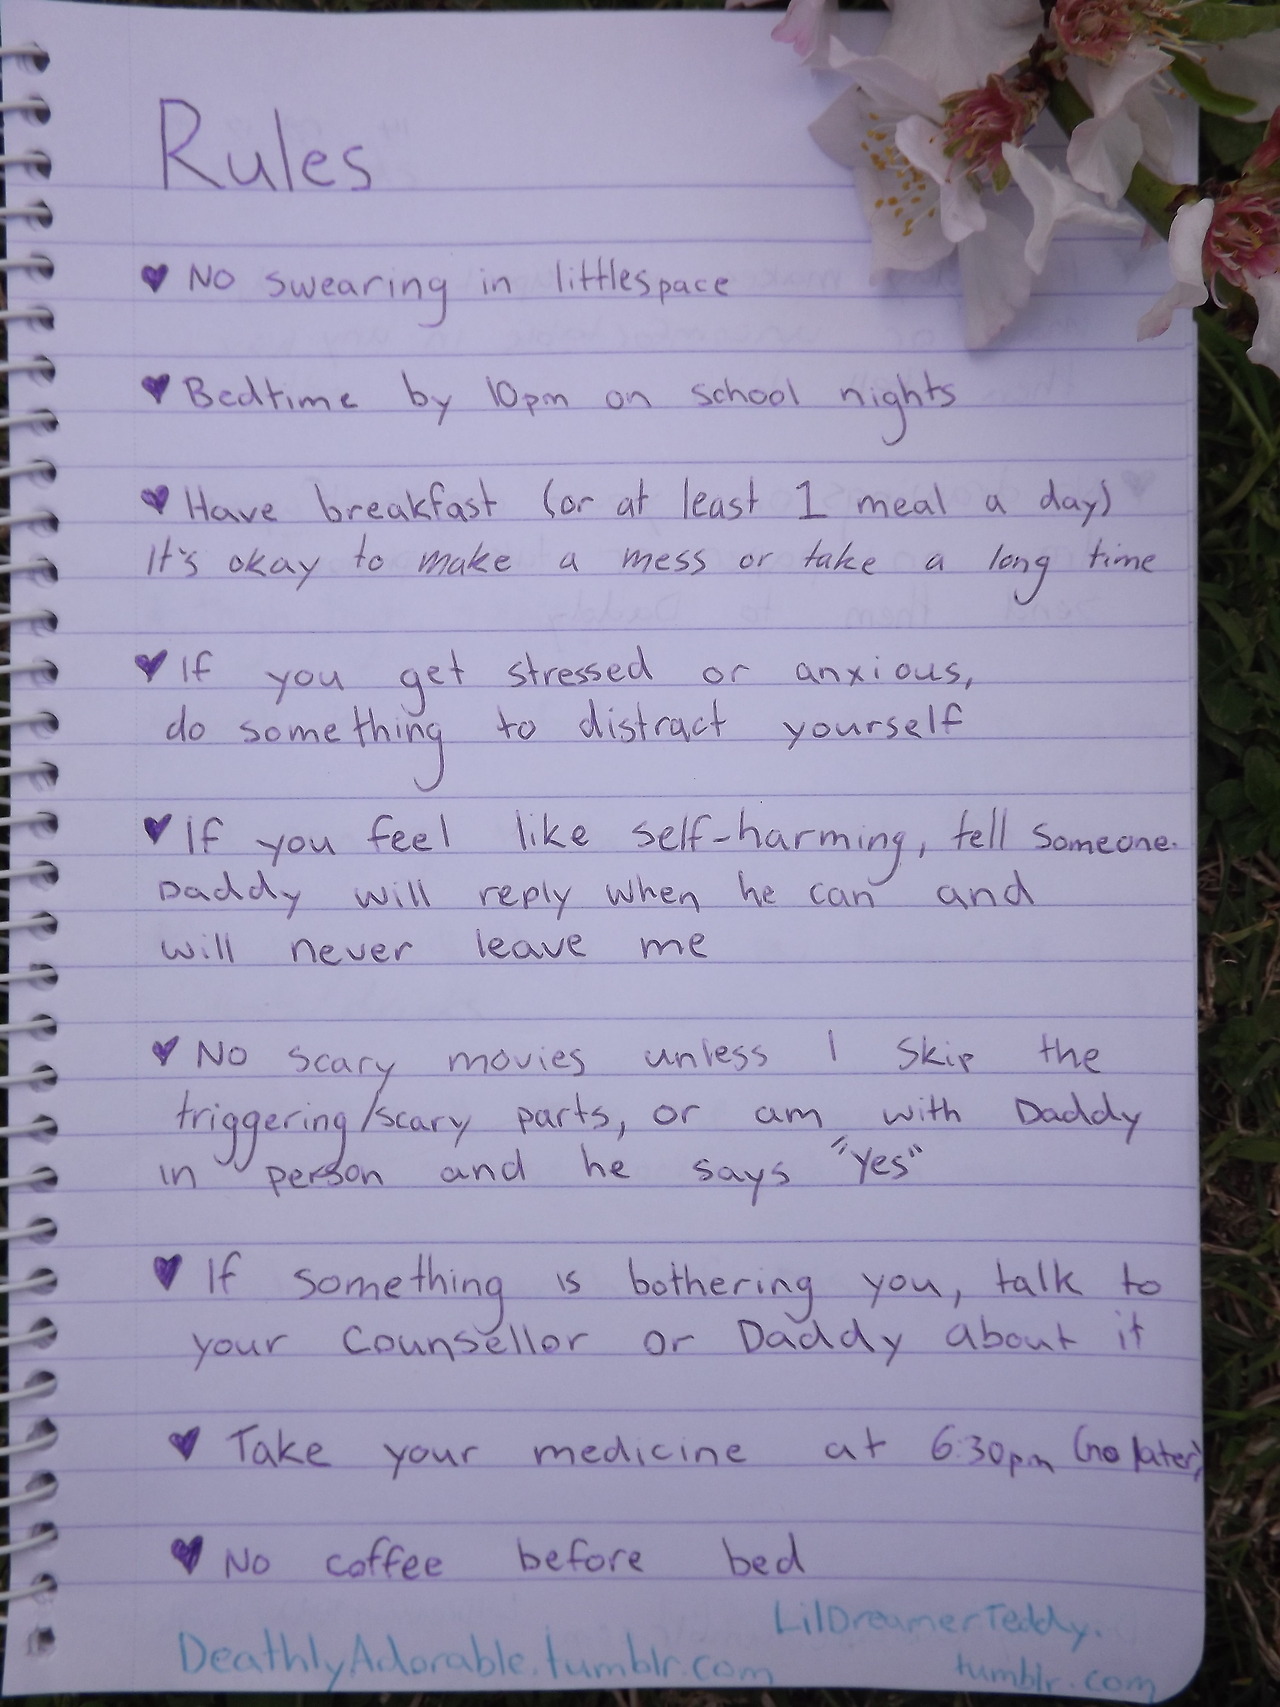 Rules
♥ No swearing in littlespace
♥ Bedtime by 10pm on school nights
♥ Have breakfast (or at least 1 meal a day)
It's okay to make a mess or take a long time
♥ If you get stressed or anxious,
do something to distract yourself
♥ If you feel like self-harming, tell someone.
Daddy will reply when he can and
will never leave me
♥ No scary movies unless I skip the
triggering/scary parts, or am with Daddy
in person and he says "yes"
♥ If something is bothering you, talk to
your Counsellor or Daddy about it
♥ Take your medicine at 6:30pm (no later)
♥ No coffee before bed
LilDreamerTeddy.
DeathlyAdorable.tumblr.com
tumblr.com